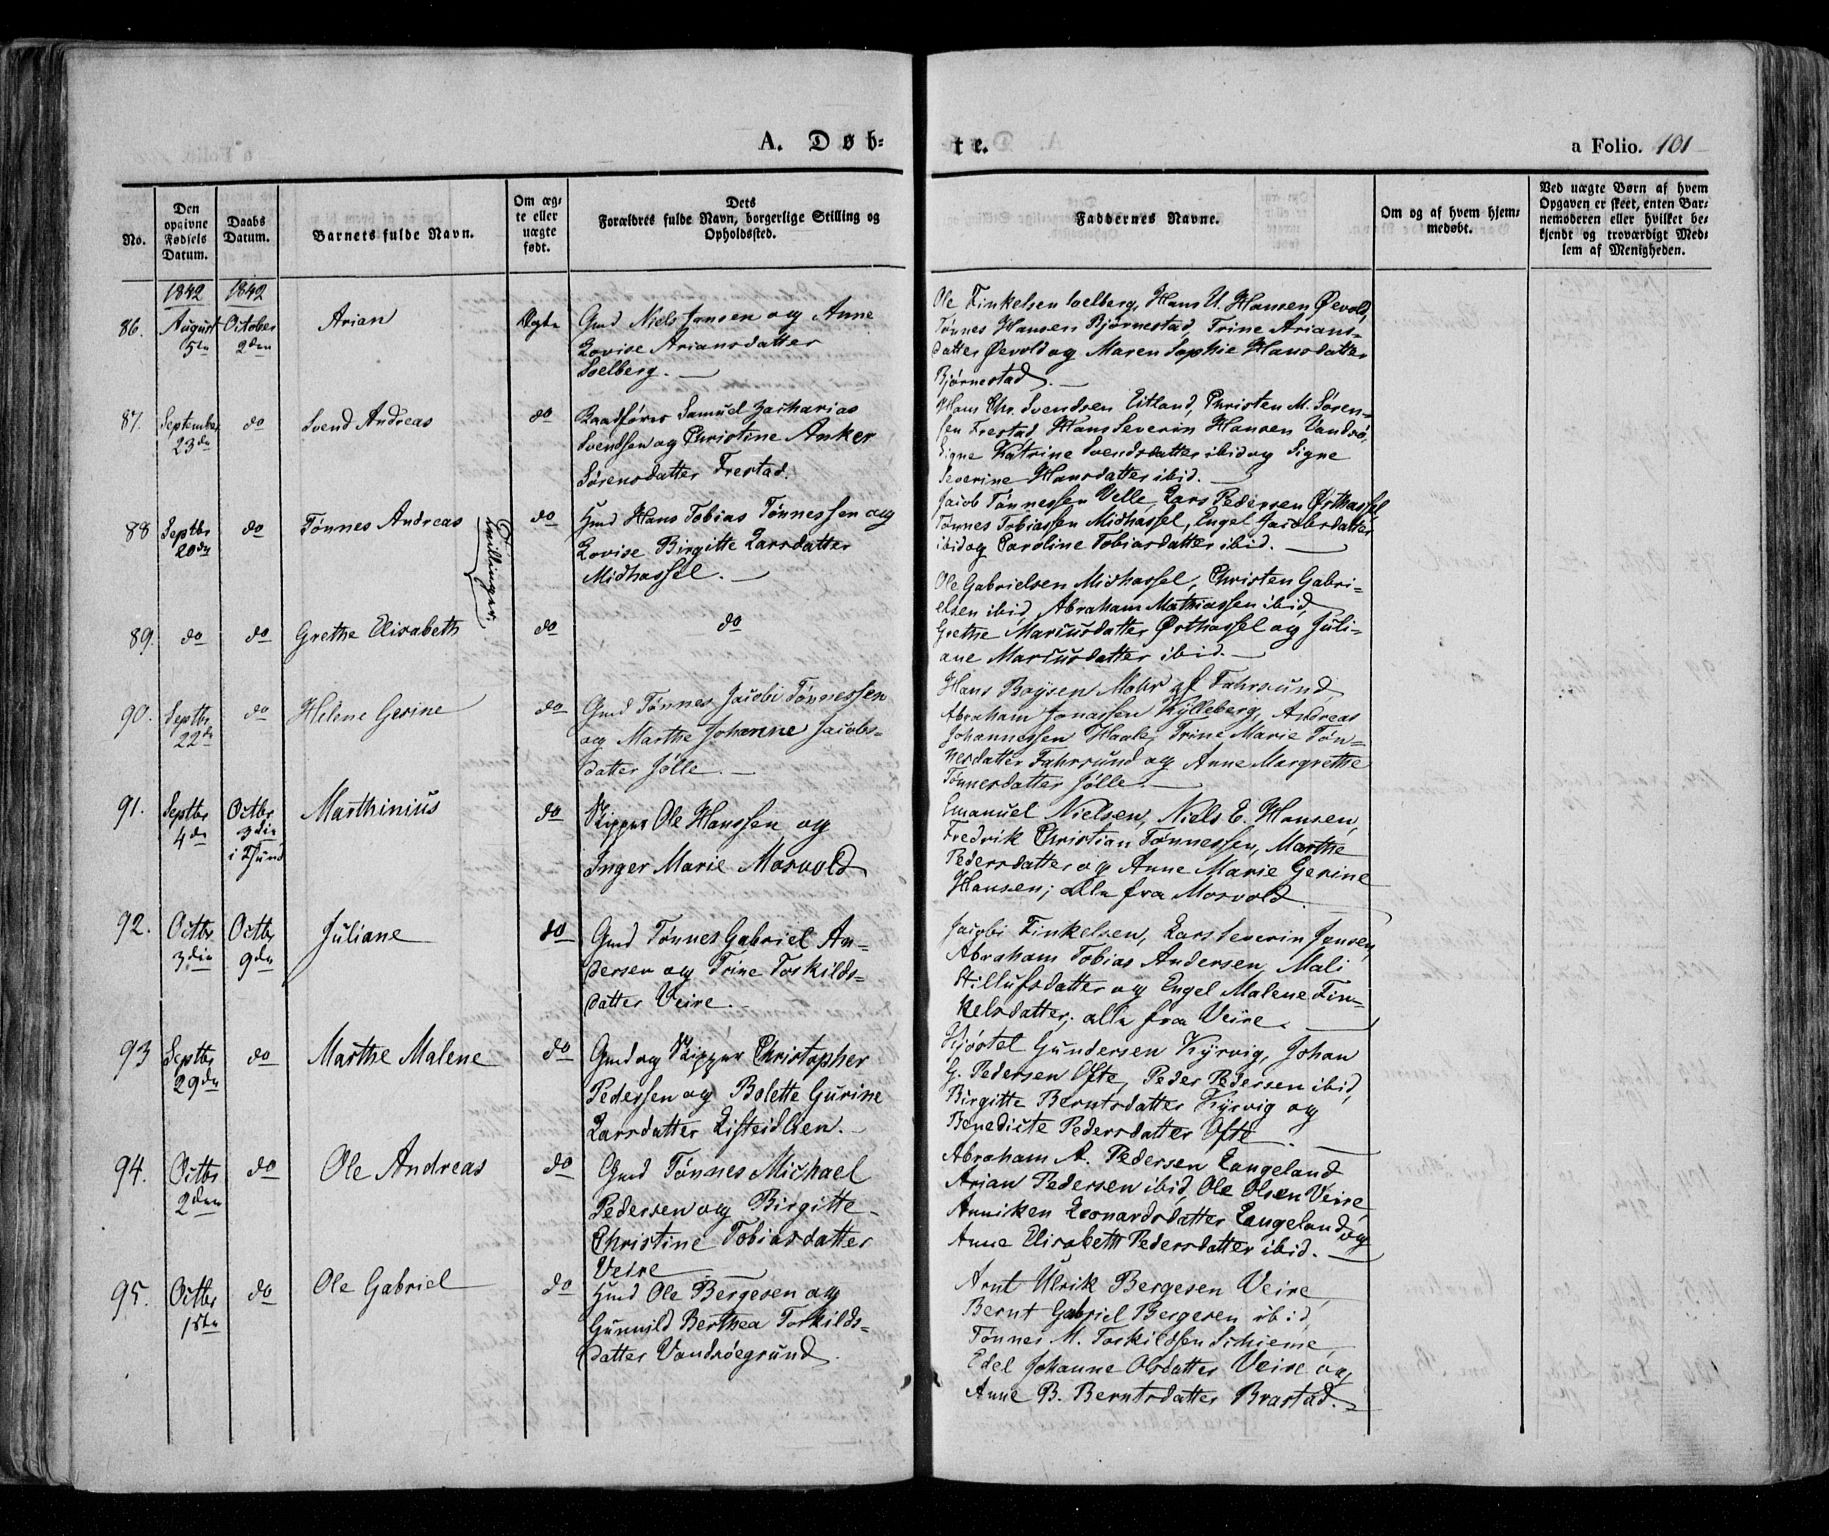 A. Døb-
te.
a Folio. 101
No.
Den
opgivne
Fødsels
Datum.
Daabs
Datum.
Barnets fulde Navn.
Om æg-
te eller
uægte
født.
Dets
Forældres fulde Navn, borgerlige Stilling og
Opholdssted.
Faddernes Navne.
Om og af hvem hjem-
medøbt.
Ved uægte Børn af hvem
Opgaven er skeet, enten Bar-
nemoderen eller hvilket be-
kjendt og troværdigt Med-
lem af Menigheden.
1842 1842
86. August 5te October 2den Arian Ægte
Gmd Niels Jansen og Anne
Lovise Ariansdatter
Svelberg.
Ole Finkelsen Svelberg, Hans U. Hansen Øevold,
Tønnes Hansen Bjørnestad, Trine Arians-
datter Øevold og Maren Sophie Hansdatter
Bjørnestad.
87. September 23de do Svend Andreas do
Raadfører Samuel Zacharias
Svendsen og Christine Anker
Sørensdatter Frestad.
Hans Chr. Svendsen Eitland, Christen M. Søren-
sen Frestad, Hans Severin Hansen Vandsø,
Signe Katrine Svendsdatter ibid og Signe
Severine Hansdatter ibid.
88 Septbr 20de do Tønnes Andreas do
Tvillinger
Hmd Hans Tobias Tønnessen og
Lovise Birgitte Larsdatter
Midhassel.
Jacob Tønnessen Velle, Lars Pedersen Østhassel
Tønnes Tobiassen Midhassel, Engel Jacobsdatter
ibid og Caroline Tobiasdatter ibid.
89. do do Grethe Elisabeth do do
Ole Gabrielsen Midhassel, Christen Gabri-
elsen ibid, Abraham Mathiassen ibid,
Grethe Marcusdatter Østhassel og Juli-
ane Marcusdatter ibid.
90. Septbr 22de do Helene Gerine do
Gmd Tønnes Jacobi Tønnessen
og Marthe Johanne Jacobs-
datter Jølle.
Hans Boysen Mohr af Fahrsund
Abraham Jonassen Kylleberg, Andreas
Johannessen Haale, Trine Marie Tøn-
nesdatter Fahrsund og Anne Margrethe
Tønnesdatter Jølle.
91. Septbr 4de Octbr 3die i Fsund Marthinius do
Skipper Ole Hanssen og
Inger Marie Mosvold
Emanuel Nielsen, Niels E. Hansen,
Fredrik Christian Tønnessen, Marthe
Pedersdatter og Anne Marie Gerine
Hansen; alle fra Mosvold.
92. Octbr 3die Octbr 9de Juliane do
Gmd Tønnes Gabriel An-
dersen og Trine Toskilds-
datter Veire.
Jacobi Finkelsen, Lars Severin Jensen,
Abraham Tobias Andersen, Mali
Stillufsdatter og Engel Malene Fin-
kelsdatter; alle fra Veire.
93 Septbr 29de do Marthe Malene do
Gmd og Skipper Christopher
Pedersen og Bolette Gurine
Larsdatter Listeidben.
Kjøstel Gundersen Kyrvig, Johan
G. Pedersen Ofte, Peder Pedersen ibid,
Birgitte Berntsdatter Kyrvig og
Benedicte Pedersdatter Ofte.
94. Octbr 2den do Ole Andreas do
Gmd Tønnes Michael
Pedersen og Birgitte
Christine Tobiasdatter
Veire
Abraham A. Pedersen Langeland
Arian Pedersen ibid, Ole Olsen Veire,
Anniken Leonardsdatter Langeland og
Anne Elisabeth Pedersdatter ibid.
95. Octbr 1ste do Ole Gabriel do
Hmd Ole Bergesen og
Gunnild Berthea Toskilds-
datter Vandsøegrund.
Arnt Ulrik Bergesen Veire,
Bernt Gabriel Bergesen ibid,
Tønnes M. Toskildsen Schieme,
Edel Johanne Olsdatter Veire og
Anne B. Berntsdatter Brastad.